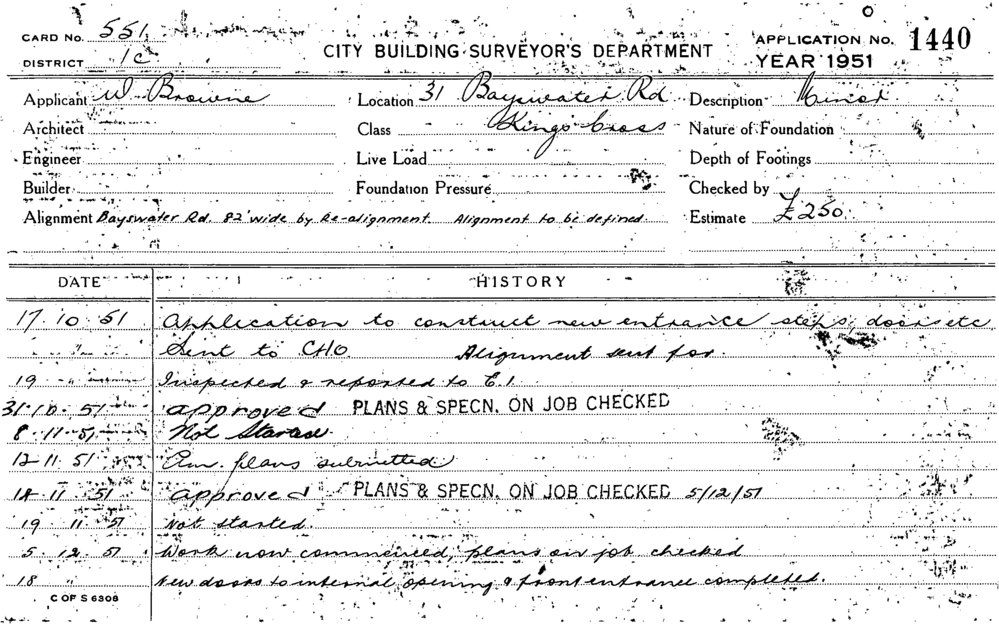 CARD No. 551
DISTRICT 1c
CITY BUILDING SURVEYOR'S DEPARTMENT
APPLICATION No. 1440
YEAR 1951
Applicant W Browne Location 31 Bayswater Rd Description Minor
Architect Class Kings Cross Nature of Foundation
Engineer Live Load Depth of Footings
Builder Foundation Pressure Checked by
Alignment Bayswater Rd. 82' wide by Re-alignment. Alignment to be defined. Estimate £250.
DATE HISTORY
17.10.51 Application to construct new entrance steps, doors etc
Sent to CHO. Alignment sent for.
19 " Inspected & reported to E.I.
31.10.51 approved PLANS & SPECN. ON JOB CHECKED
8.11.51 Not Started
12.11.51 Am. plans submitted
14 11 51 approved PLANS & SPECN. ON JOB CHECKED 5/12/51
19 11 51 Not started.
5.12.51 Work now commenced, plans on job checked
18 " New doors to internal opening & front entrance completed.
C OF S 6308